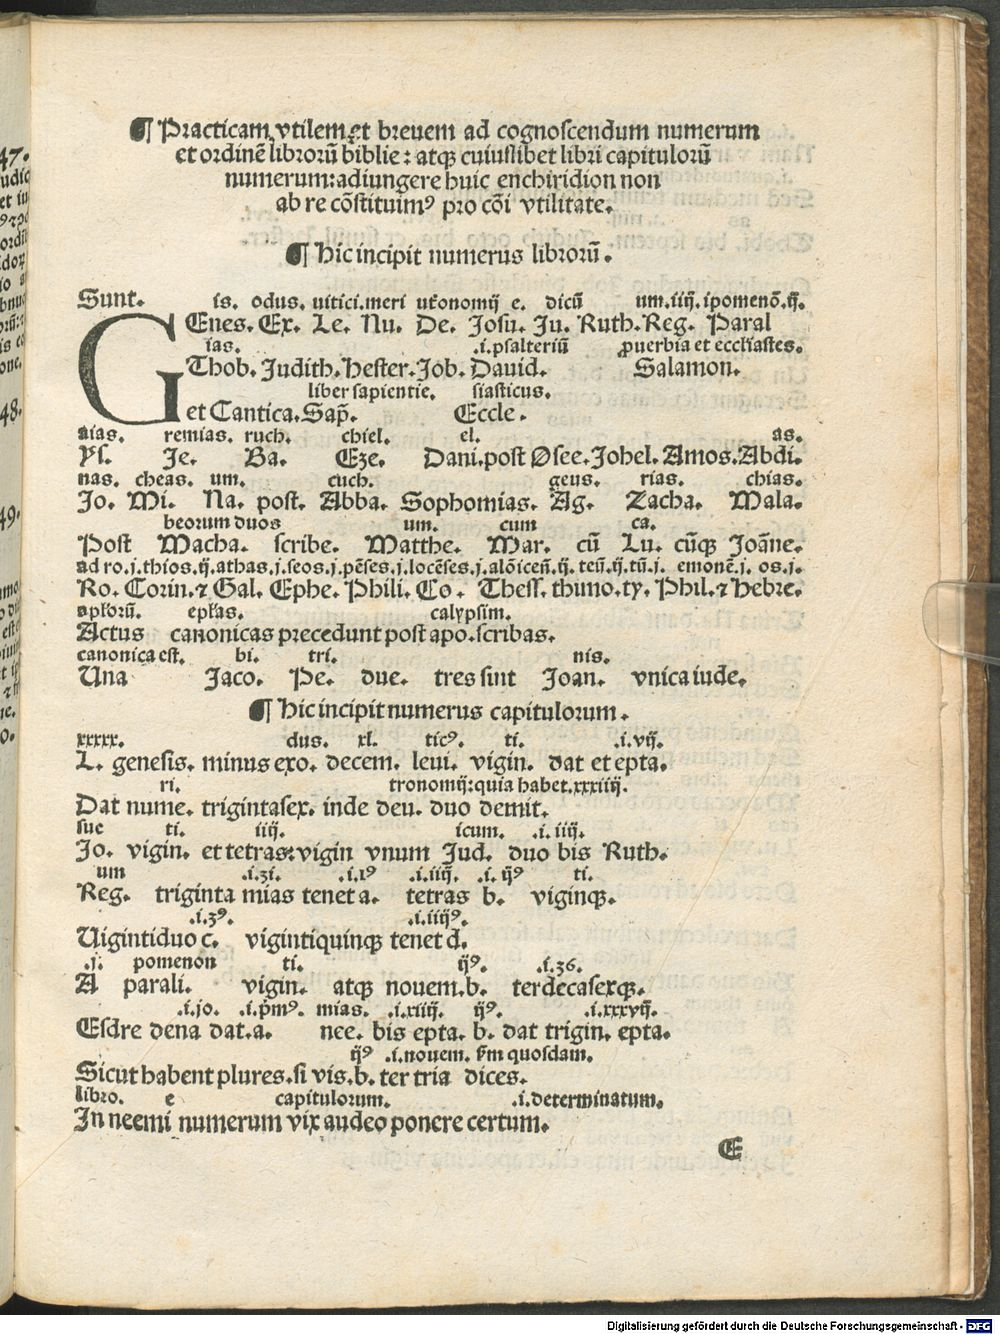 ¶ Practicam vtilem et breuem ad cognoscendum numerum
et ordinē librorū biblie: atqꝫ cuiuslibet libri capitulorū
numerum: adiungere huic enchiridion non
ab re cōstituimꝰ pro cōi vtilitate.
¶ Hic incipit numerus librorū.
Sunt. is. odus. uitici. meri ut̄onomij e. dicū um. iiij. ipomenō. ij.
GEnes. Ex. Le. Nu. De. Josu. Ju. Ruth. Reg. Paral
ias. .i. psalteriū ꝓuerbia et eccl'iastes.
Thob. Judith. Hester. Job. Dauid. Salamon.
liber sapientie. siasticus.
et Cantica. Sap̄. Eccle.
aias. remias. ruch. chiel. el. as.
Ys. Je. Ba. Eze. Dani. post Osee. Johel. Amos. Abdi.
nas. cheas. um. cuch. geus. rias. chias.
Jo. Mi. Na. post. Abba. Sophomias. Ag. Zacha. Mala.
beorum duos um. cum ca.
Post Macha. scribe. Matthe. Mar. cū Lu. cūqꝫ Joāne.
ad ro. j. thios. ij. athas. j. seos. j. pēses. j. locēses. j. alōicen̄. ij. teū. ij. tū. j. emonē. j. os. j.
Ro. Corin. ⁊ Gal. Ephe. Phili. Co. Thess. thimo. ty. Phil. ⁊ Hebre.
apl'orū. epl'as. calypsim.
Actus canonicas precedunt post apo. scribas.
canonica est. bi. tri. nis.
Una Jaco. Pe. due. tres sint Joan. vnica iude.
¶ Hic incipit numerus capitulorum.
xxxxx. dus. xl. ticꝰ. ti. .i. vij.
L. genesis. minus exo. decem. leui. vigin. dat et epta.
ri. tronomij: quia habet. xxxiiij.
Dat nume. trigintasex. inde deu. duo demit.
sue ti. iiij. icum. .i. iiij.
Jo. vigin. et tetras: vigin vnum Jud. duo bis Ruth.
um .i. 31. .i. 1ꝰ .i. iiij. .i. ijꝰ ti.
Reg. triginta mias tenet a. tetras b. viginqꝫ.
.i. 3ꝰ. .i. iiijꝰ.
Uigintiduo c. vigintiquinqꝫ tenet d.
.j. pomenon ti. ijꝰ. .i. 36.
A parali. vigin. atqꝫ nouem. b. terdecasexqꝫ.
.i. 10. .i. p̄mꝰ. mias. .i. xiiij. ijꝰ. .i. xxxvij.
Esdre dena dat. a. nee. bis epta. b. dat trigin. epta.
ijꝰ .i. nouem. s̄m quosdam.
Sicut habent plures. si vis. b. ter tria dices.
libro. e capitulorum. .i. determinatum.
In neemi numerum vix audeo ponere certum.
E
47.
48.
49.
Digitalisierung gefördert durch die Deutsche Forschungsgemeinschaft - DFG